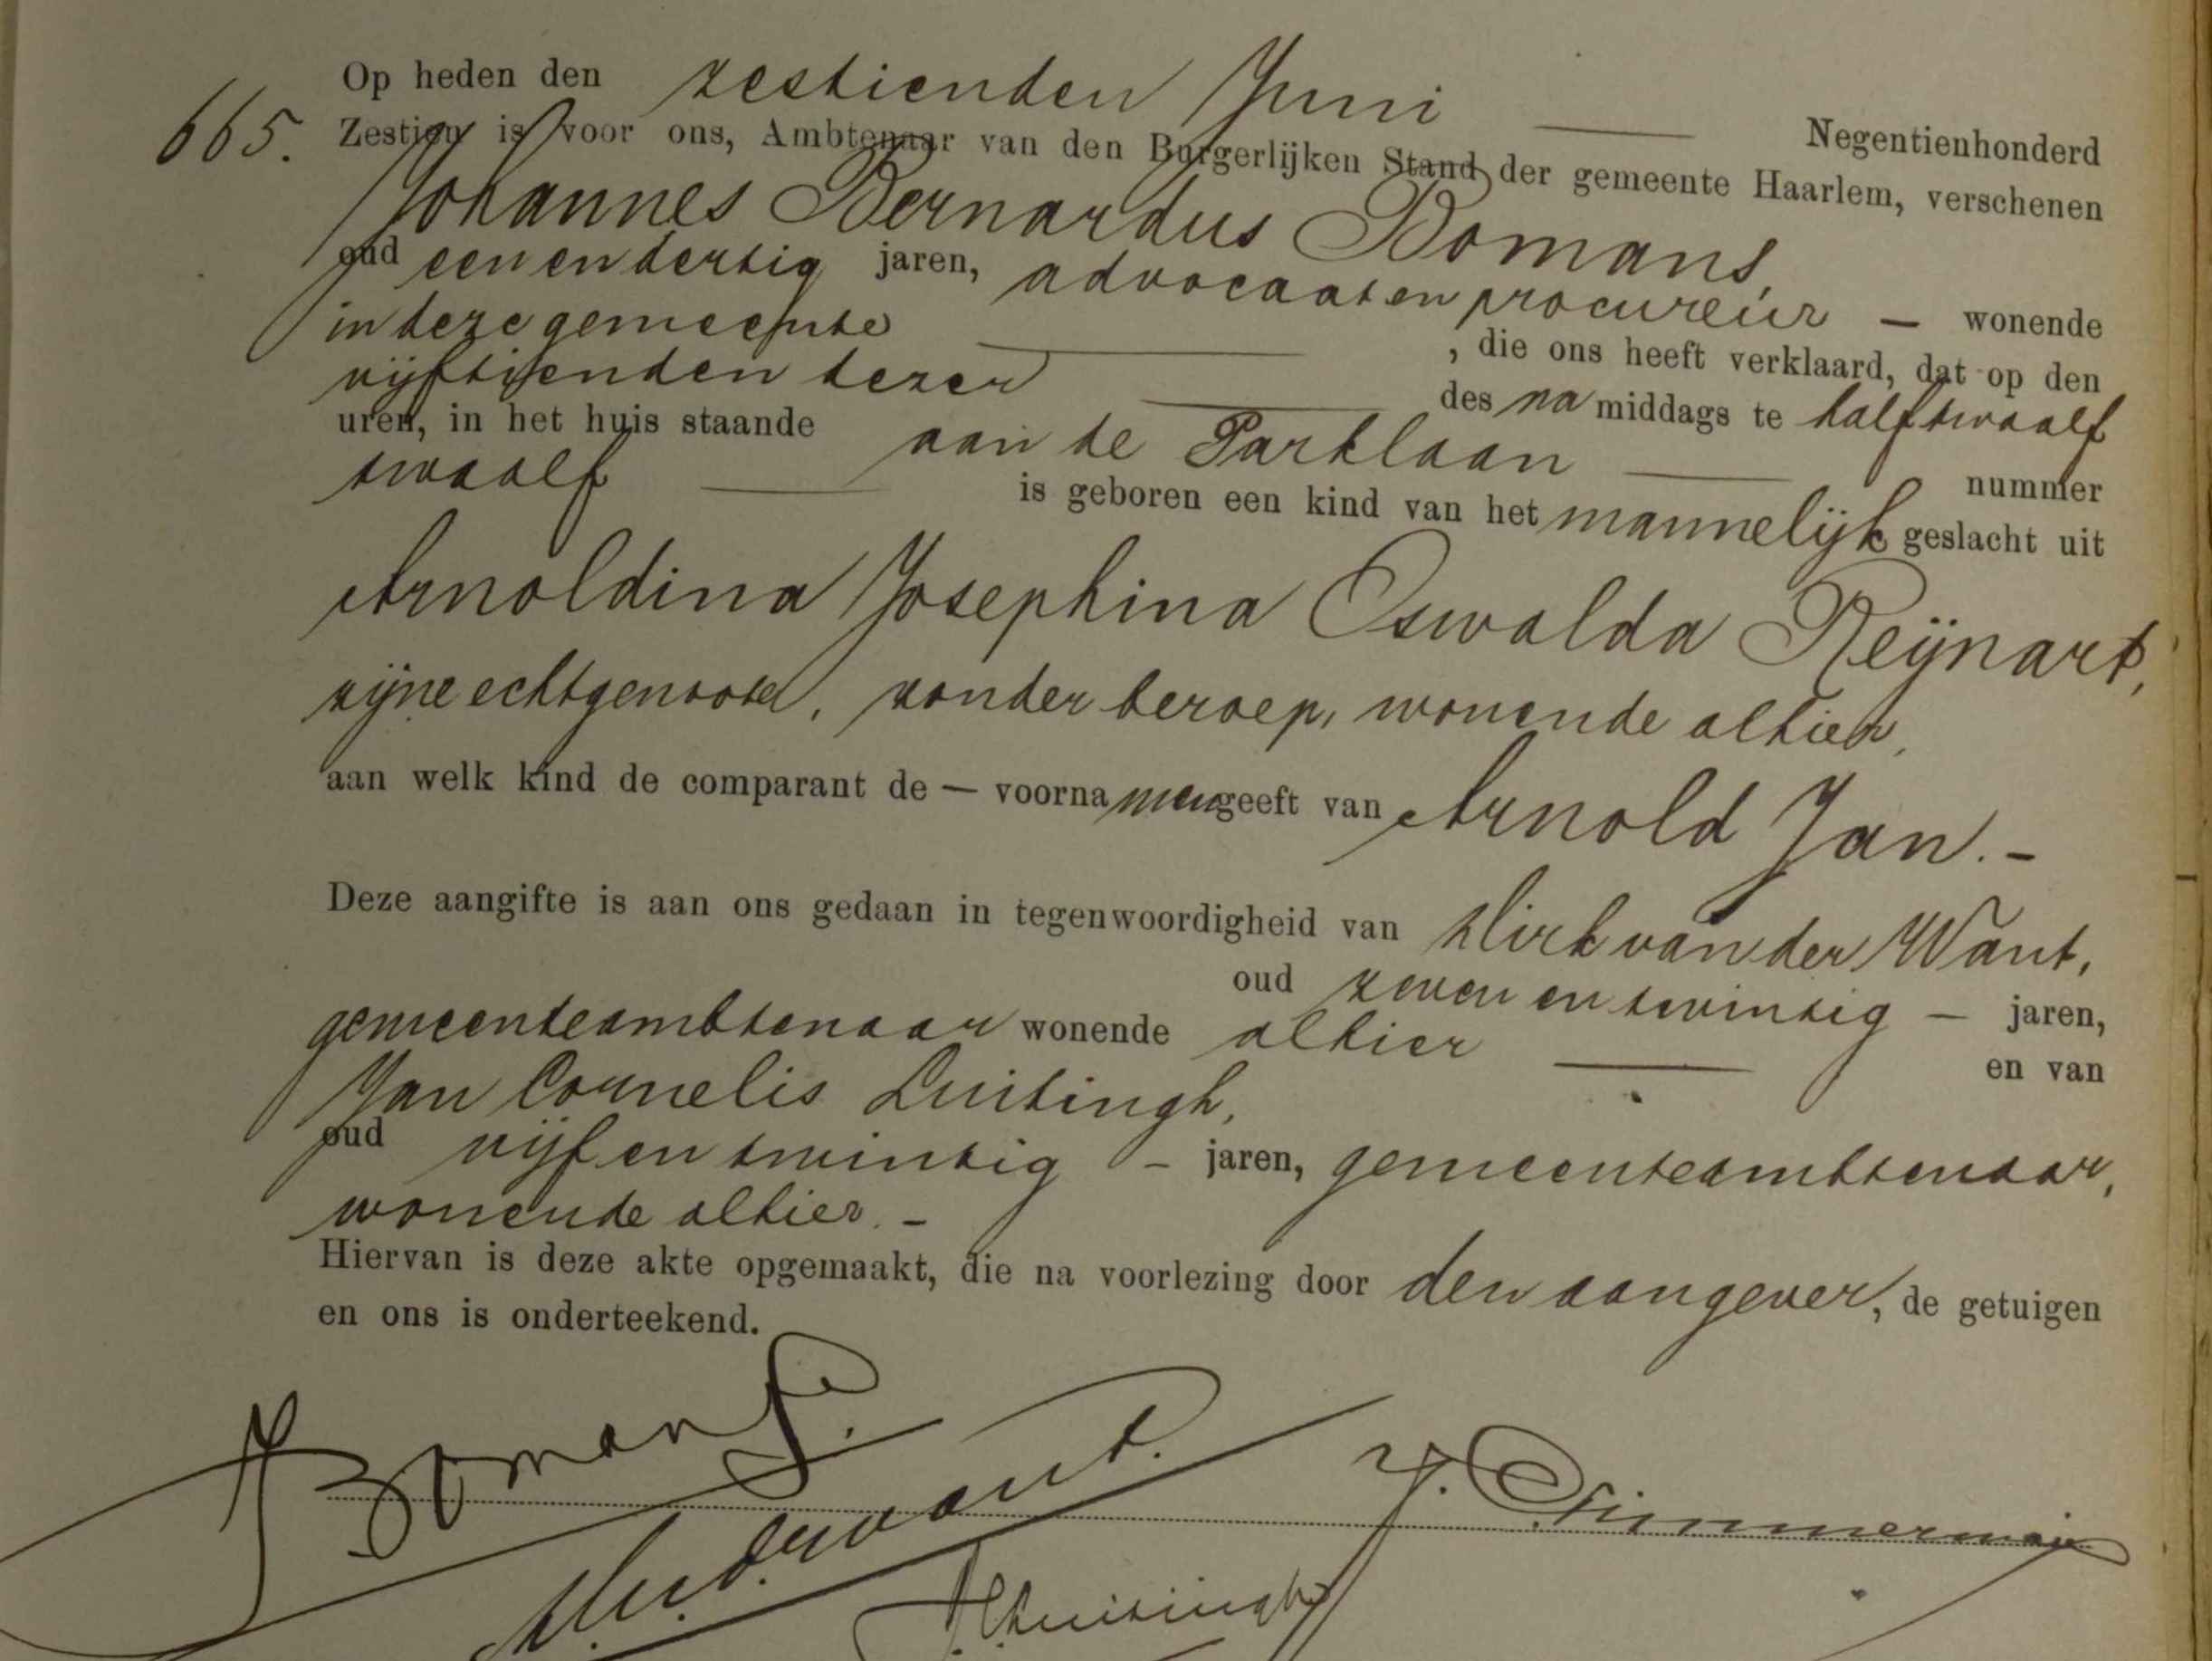 665.
Op heden den zestienden Juni — Negentienhonderd
Zestien is voor ons, Ambtenaar van den Burgerlijken Stand der gemeente Haarlem, verschenen
Johannes Bernardus Bomans,
oud een en dertig jaren, advocaat en procureur — wonende
in deze gemeente — , die ons heeft verklaard, dat op den
vijftienden dezer — des na middags te half twaalf
uren, in het huis staande aan de Parklaan — nummer
twaalf — is geboren een kind van het mannelijk geslacht uit
Arnoldina Josephina Oswalda Reijnart,
zijne echtgenoote, zonder beroep, wonende alhier,
aan welk kind de comparant de — voornamen geeft van Arnold Jan. —
Deze aangifte is aan ons gedaan in tegenwoordigheid van Dirk van der Want,
oud zeven en twintig — jaren,
gemeenteambtenaar wonende alhier — en van
Jan Cornelis Luitingh,
oud vijf en twintig — jaren, gemeenteambtenaar,
wonende alhier. —
Hiervan is deze akte opgemaakt, die na voorlezing door den aangever, de getuigen
en ons is onderteekend.
JBomans.
D. v. d. Want.
JCLuitingh